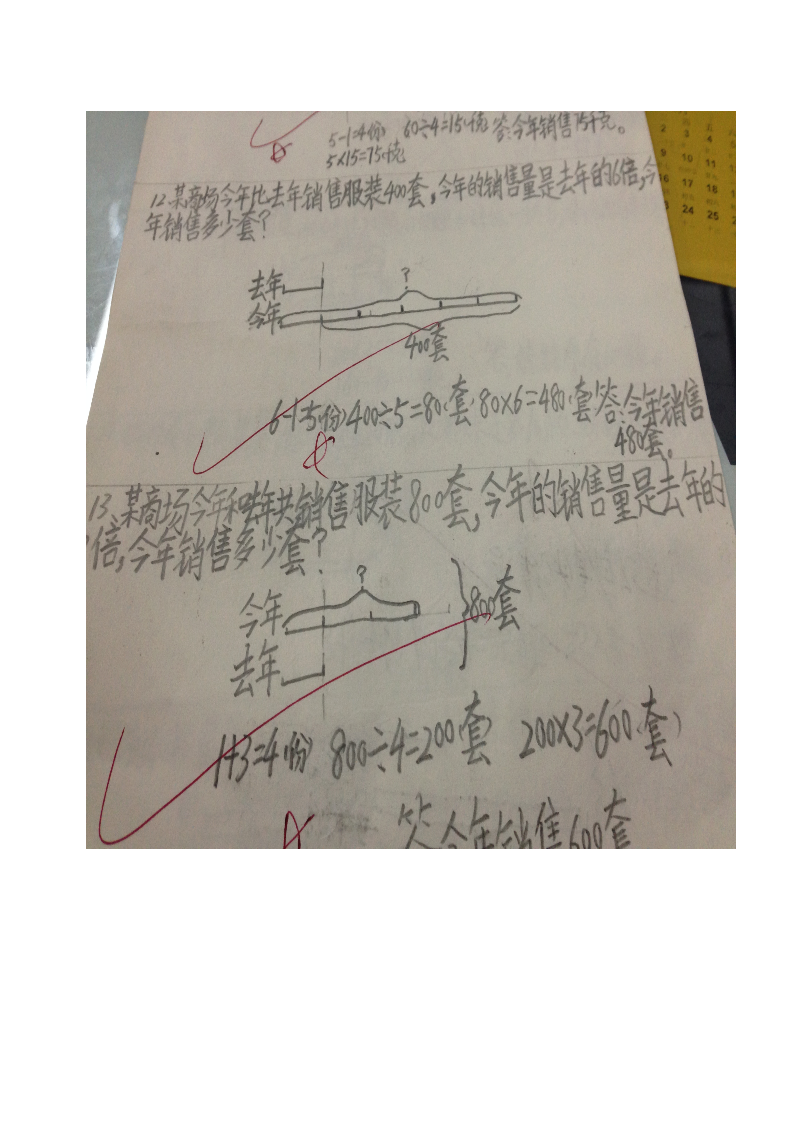 5-1=4(份) 60÷4=15(千克) 答:今年销售75千克。
5×15=75(千克)
12.某商场今年比去年销售服装400套,今年的销售量是去年的6倍,今
年销售多少套?
?
去年
今年
400套
6-1=5(份) 400÷5=80(套) 80×6=480(套) 答:今年销售
480套。
13.某商场今年和去年共销售服装800套,今年的销售量是去年的
倍,今年销售多少套?
?
今年
800套
去年
1+3=4(份) 800÷4=200(套) 200×3=600(套)
答:今年销售600套
2 3 4
9 10 11
16 17 18
23 24 25